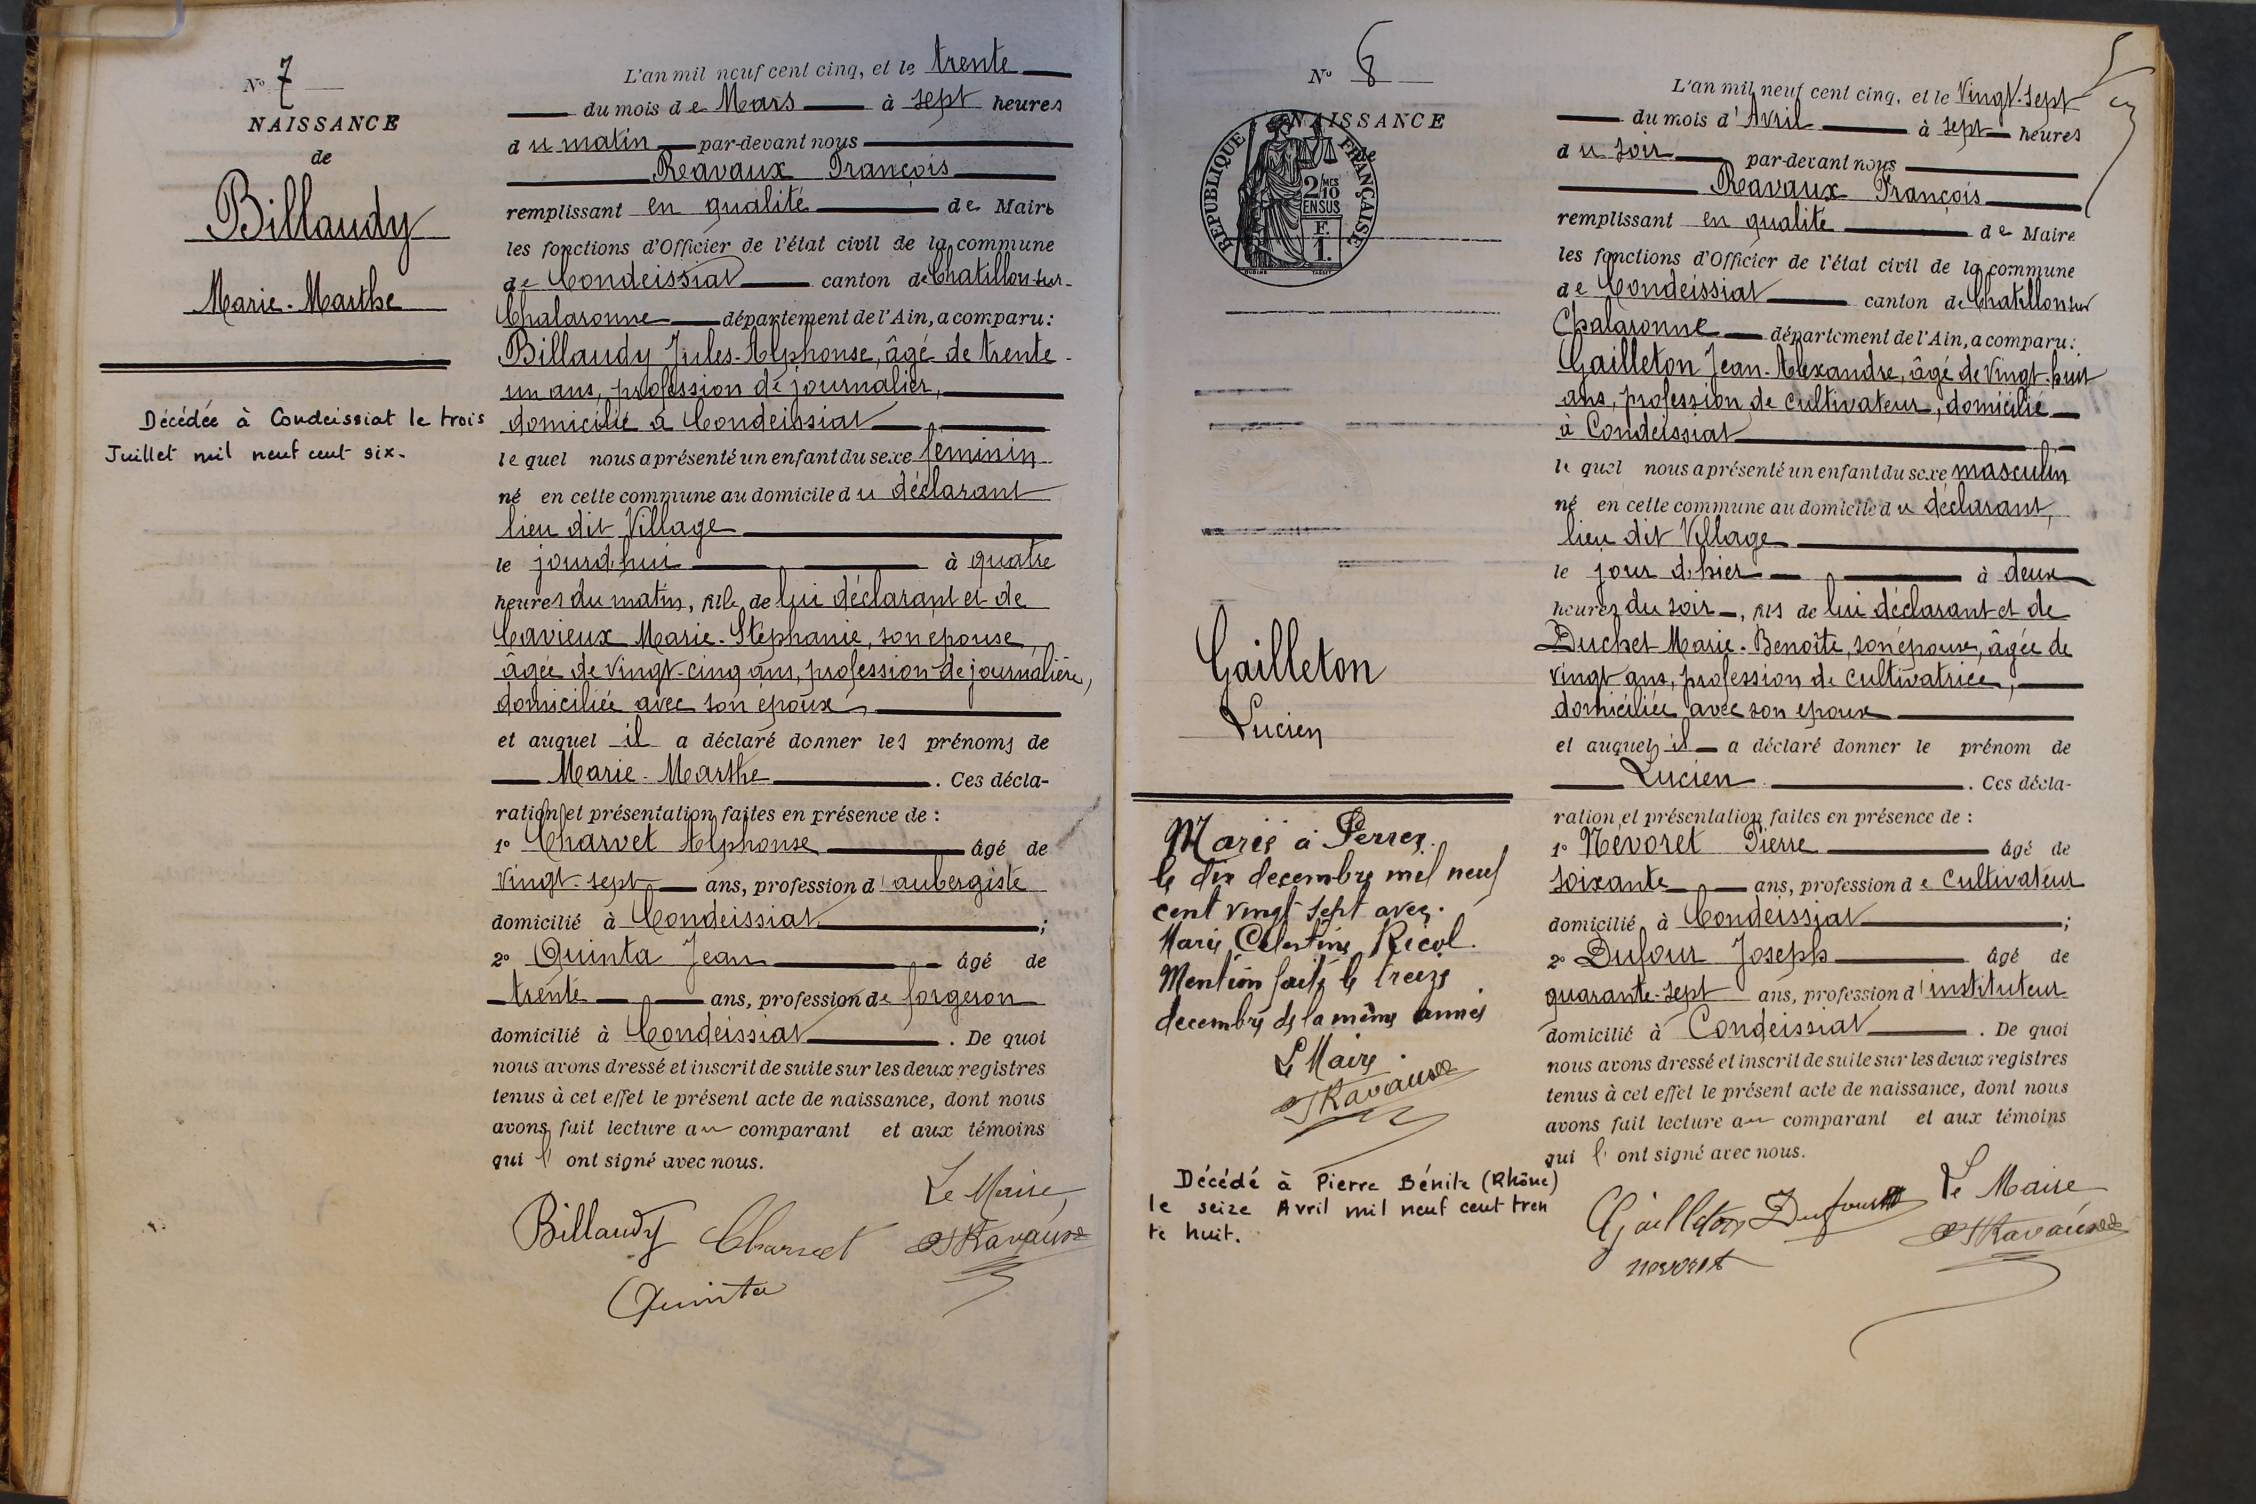 N° 7
NAISSANCE
de
Billaudy
Marie-Marthe
Décédée à Condeissiat le trois
Juillet mil neuf cent six.
L'an mil neuf cent cinq, et le trente
du mois de Mars à sept heures
du matin par-devant nous
Ravaux François
remplissant en qualité de Maire
les fonctions d'Officier de l'état civil de la commune
de Condeissiat canton de Chatillon-sur-
Chalaronne département de l'Ain, a comparu :
Billaudy Jules-Alphonse, âgé de trente-
un ans, profession de journalier,
domicilié à Condeissiat
lequel nous a présenté un enfant du sexe féminin
né en cette commune au domicile du déclarant
lieu dit Village
le jourd'hui à quatre
heures du matin, fille de lui déclarant et de
Cavieux Marie-Stéphanie, son épouse,
âgée de vingt-cinq ans, profession de journalière,
domiciliée avec son époux,
et auquel il a déclaré donner les prénoms de
Marie-Marthe. Ces décla-
ration et présentation faites en présence de :
1° Charvet Alphonse âgé de
vingt-sept ans, profession d'aubergiste
domicilié à Condeissiat ;
2° Quinta Jean âgé de
trente ans, profession de forgeron
domicilié à Condeissiat. De quoi
nous avons dressé et inscrit de suite sur les deux registres
tenus à cet effet le présent acte de naissance, dont nous
avons fait lecture au comparant et aux témoins
qui l'ont signé avec nous.
Le Maire
Billaudy Charvet Ravaux
Quinta
N° 8
NAISSANCE
de
REPUBLIQUE FRANÇAISE
2/10 MES
EN SUS
F.
1.
Gailleton
Lucien
Marié à Perrex
le dix decembre mil neuf
cent vingt sept avec
Marie Célestine Ricol.
Mention faite le treize
decembre de la même année
Le Maire
Ravaux
Décédé à Pierre Bénite (Rhône)
le seize Avril mil neuf cent tren
te huit.
L'an mil neuf cent cinq, et le vingt-sept
du mois d'Avril à sept heures
du soir par-devant nous
Ravaux François
remplissant en qualité de Maire
les fonctions d'Officier de l'état civil de la commune
de Condeissiat canton de Chatillon sur
Chalaronne département de l'Ain, a comparu :
Gailleton Jean-Alexandre, âgé de vingt-huit
ans, profession de cultivateur, domicilié
à Condeissiat
lequel nous a présenté un enfant du sexe masculin
né en cette commune au domicile du déclarant,
lieu dit Village
le jour d'hier à deux
heures du soir, fils de lui déclarant et de
Duchet Marie-Benoîte, son épouse, âgée de
vingt ans, profession de cultivatrice,
domiciliée avec son époux
et auquel il a déclaré donner le prénom de
Lucien. Ces décla-
ration et présentation faites en présence de :
1° Névoret Pierre âgé de
soixante ans, profession de cultivateur
domicilié à Condeissiat ;
2° Dufour Joseph âgé de
quarante-sept ans, profession d'instituteur
domicilié à Condeissiat. De quoi
nous avons dressé et inscrit de suite sur les deux registres
tenus à cet effet le présent acte de naissance, dont nous
avons fait lecture au comparant et aux témoins
qui l'ont signé avec nous.
Le Maire
Gailleton Dufour Ravaux
nevoret